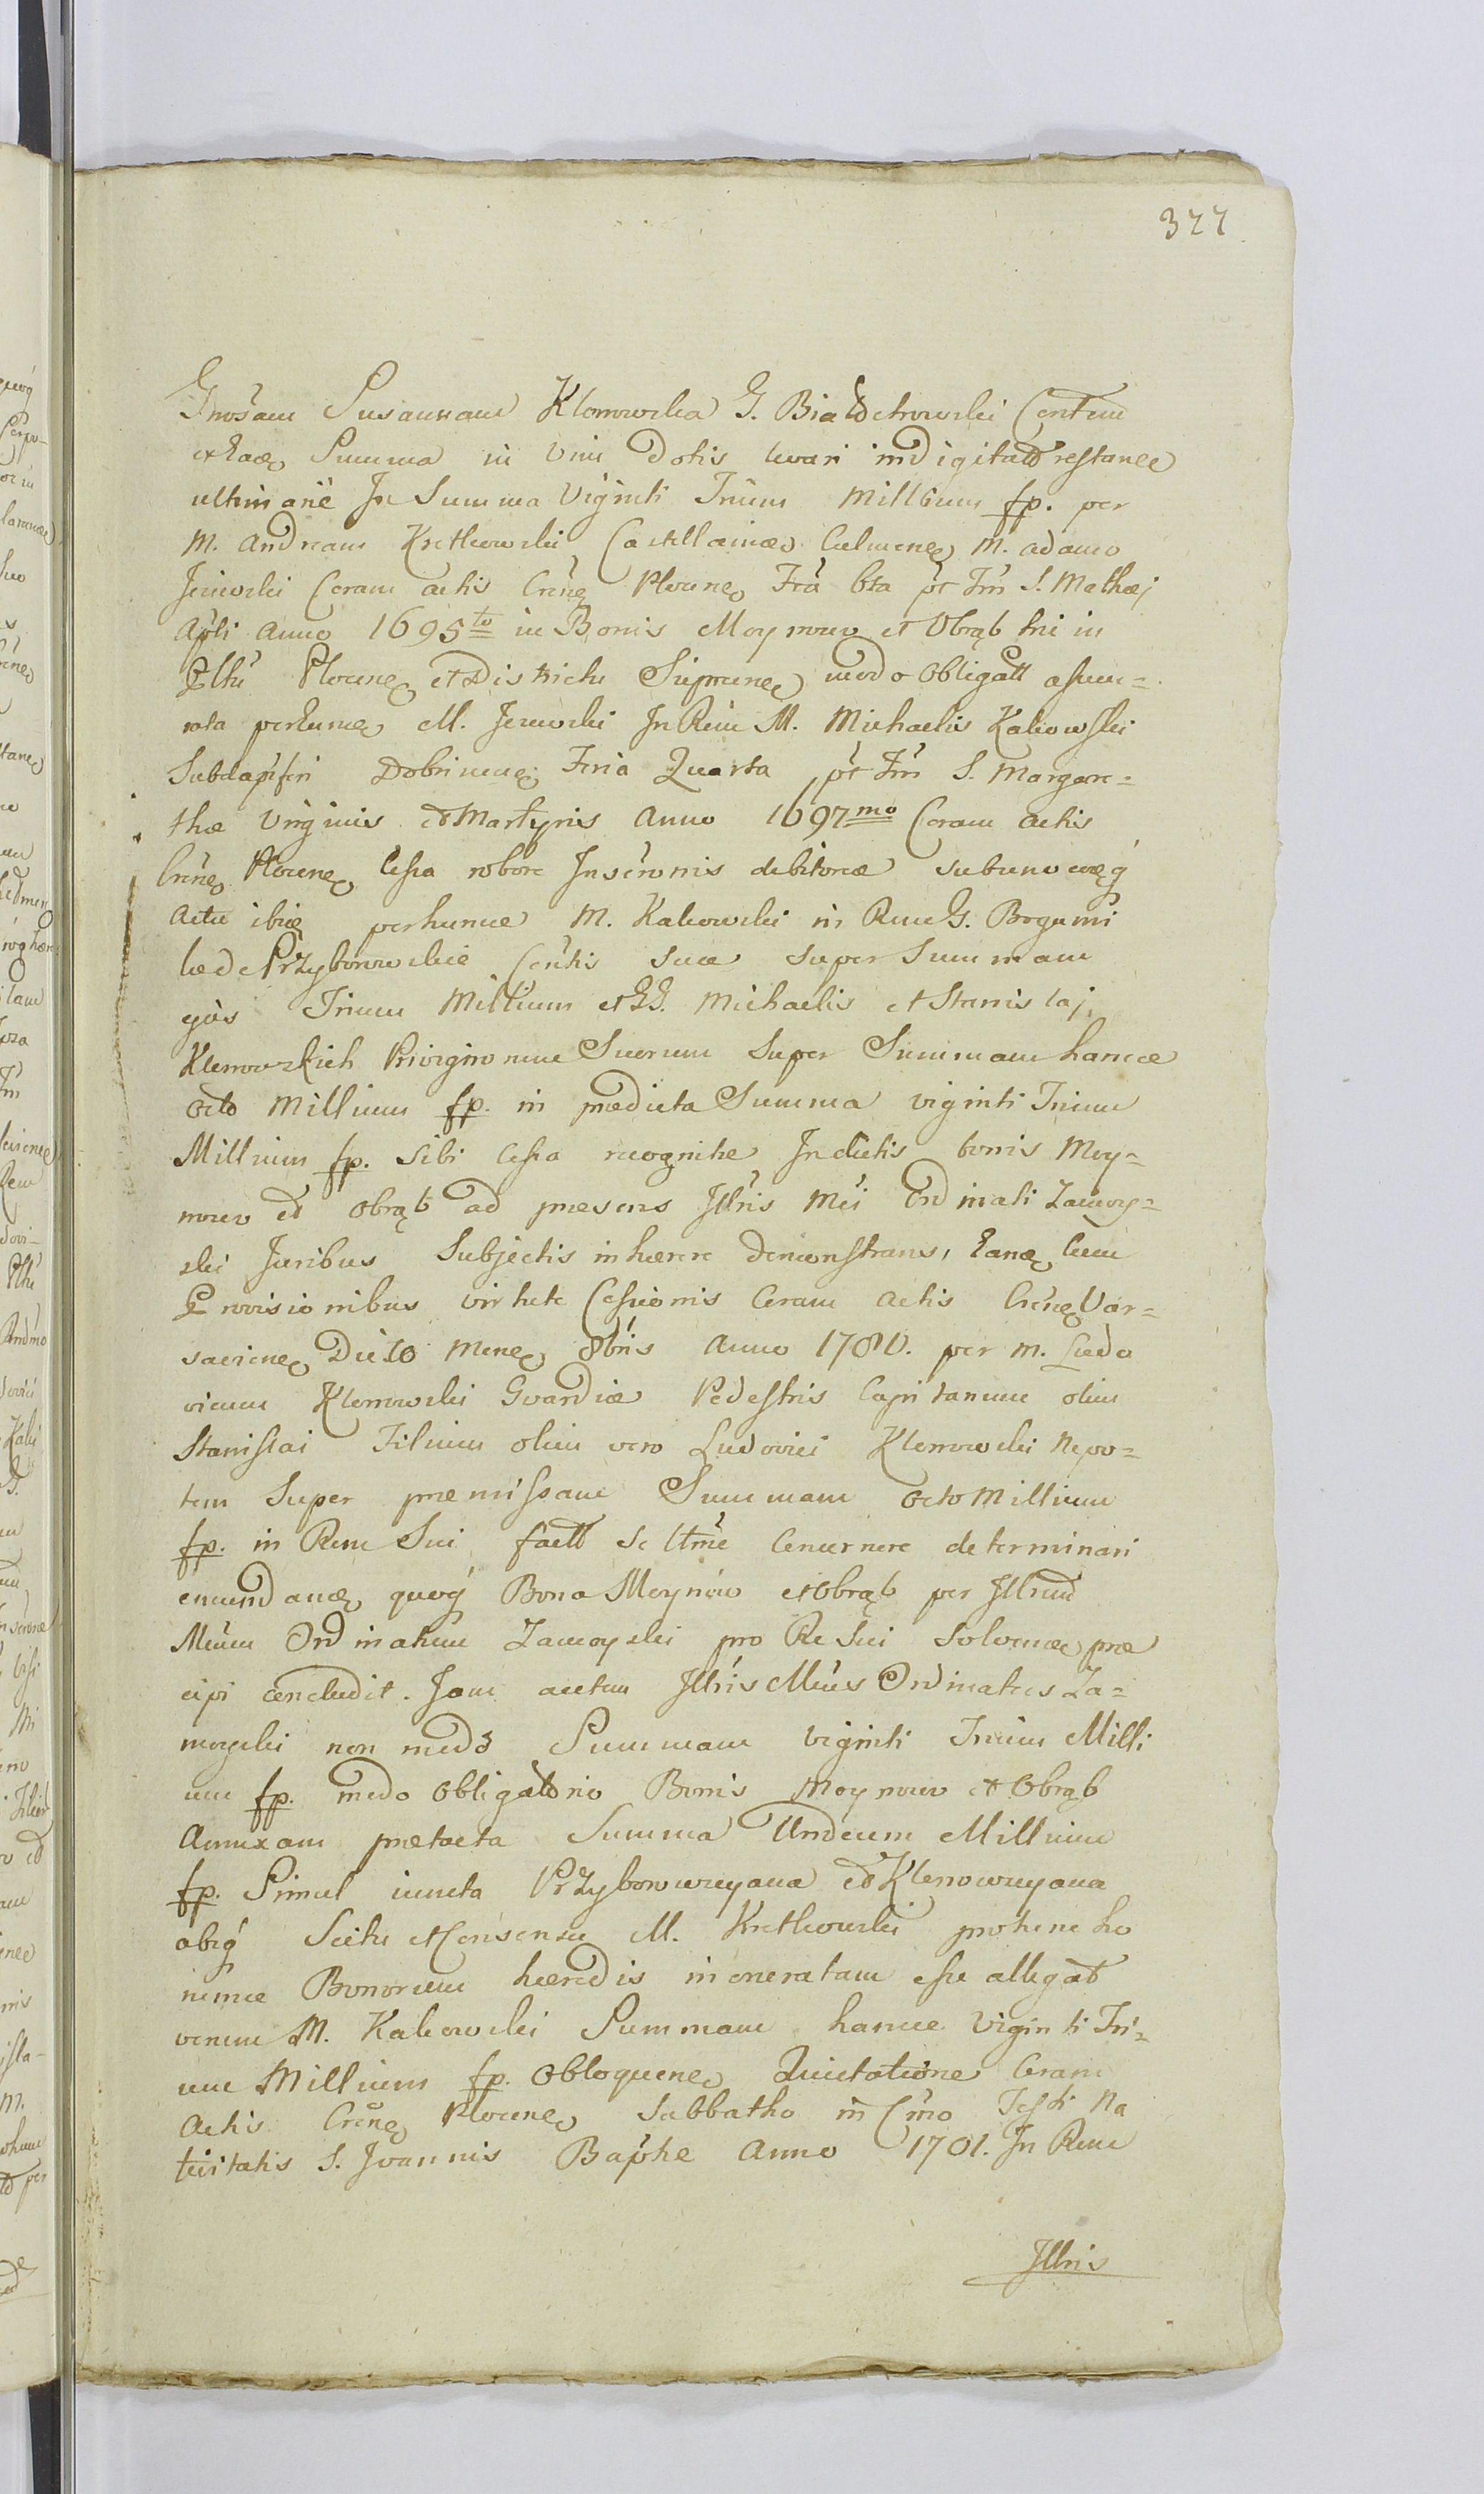 377
Gnosam Susannam Klonowska G. Białochowski Contem
exhac Summa in vim Dotis levari indigitatt restance
ultimarie In Summa Viginti Trium Millium fp. per
M. Andream Kretkowski Castellaneo Culmens M. adamo
Jeziorski Coram actis Crens Plocens Fria 6ta pt Fm S. Mathaej
Apli Anno 1695to in Bonis Moynow et Obrąb tri in
Pltu Plocens et Districtu Sieprcens modo Obligatt assecu=
rata perhunc M. Jezewski In Rem M. Michaelis Kakowski
Subdapiferi Dobrinens Feria Quarta pt Fm S. Margare=
thae Virginis et Martyris Anno 1697mo Coram Actis
Crens Plocens Cessa robore Inscronis debitoria subunoeoq
Actu ibiq perhunce M. Kakowski in Rem G. Bogumi
lae de Przyborowskie Contis suae super Summam
Trium Millium et GG. Michaelis et Stanislaj
Klenowskich Privignorum Suorum Super Summam hance
Octo Millium fp. in praedicta Summa viginti Trium
Millium fp. Sibi Cessa recognitae In dictis bonis Moy=
now et Obrąb ad praesens Illris Mci Ordinati Zamoy=
ski Juribus Subjectis inhaerere demonstrans, eanq Cum
Provisionibus virtute Cessionis Coram Actis Crens Var=
saviens Die 10 Mens 8bris Anno 1780. per M. Ludo
vicum Klenowski Gvardiae Pedestris Capitanum olim
Stanislai Filium olim vero Ludovici Klenowski Nepo=
tem Super praemissam Summam Octo Millium
fp. in Rem Sui factt Se ltme Concernere determinari
emundanq quoq Bona Moynów et Obrąb per Illrem
Mcum Ordinatum Zamoyski pro Re Sui Solvence prae
cipi concludit. Jam autem Illris Mcus Ordinatus Za=
moyski non modo Summam viginti Trium Milli
um fp. modo Obligatorio Bonis Moynow et Obrąb
Annexam praetacta Summa Undecim Millium
fp. Simul iuncta Przyborowsciana et Klenowsciana
absq Scitu et Consensu M. Kretkowski protunc ho
rumce Bonorum haeredis inoneratam esse allegat
verum M. Kakowski Summam hance Viginti Tri=
um Millium fp. Obloquens Quietatione Coram
Actis Crens Plocens Sabbatho in Cmo Festi Na
tivitatis S. Joannis Bapthe Anno 1701. In Rem
Illris